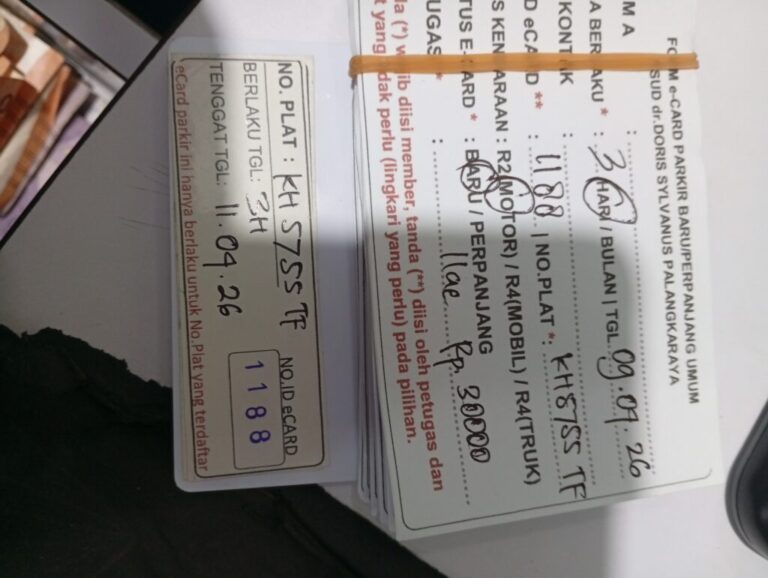 NO. PLAT : KH 5755 TF
BERLAKU TGL: 3H
TENGGAT TGL: 11.09.26
NO.ID eCARD
1188
eCard parkir ini hanya berlaku untuk No.Plat yang terdaftar
e-CARD PARKIR BARU/PERPANJANG UMUM
SUD dr.DORIS SYLVANUS PALANGKARAYA
M A :
A BERLAKU * : 3 HARI / BULAN | TGL. 09.09.26
KONTAK :
D eCARD ** : 1188 | NO.PLAT *: KH 5755 TF
S KENDARAAN : R2(MOTOR) / R4(MOBIL) / R4(TRUK)
TUS E-CARD * : BARU / PERPANJANG
UGAS * : Ilae Rp. 30000
da (*) wajib diisi member, tanda (**) diisi oleh petugas dan
t yang tidak perlu (lingkari yang perlu) pada pilihan.